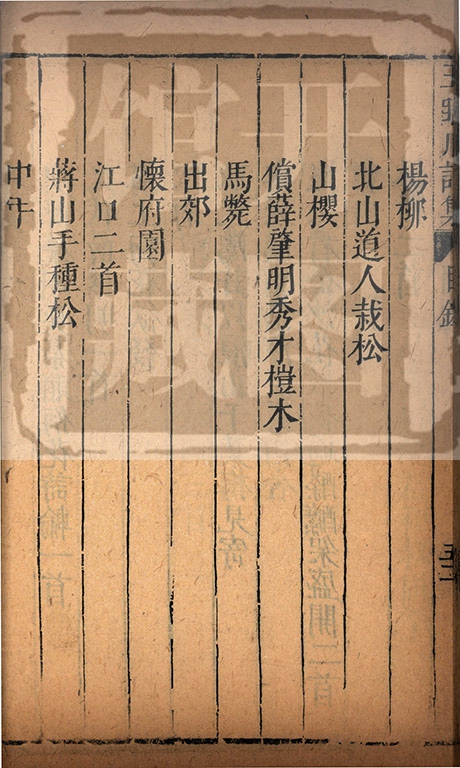 目錄
楊柳
北山道人栽松
山櫻
償薛肇明秀才榿木
馬斃
出郊
懷府園
江口二首
蔣山手種松
中年